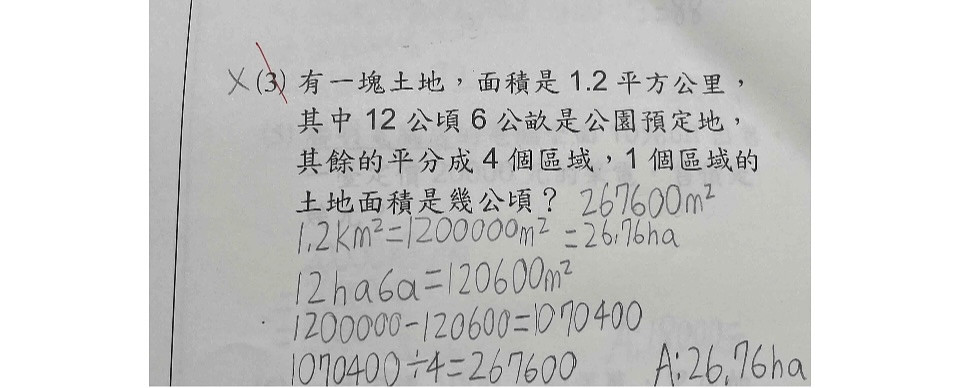 ×(3) 有一塊土地，面積是 1.2 平方公里，
其中 12 公頃 6 公畝是公園預定地，
其餘的平分成 4 個區域，1 個區域的
土地面積是幾公頃？ 267600m²
1.2km²=1200000m² =26.76ha
12ha6a=120600m²
1200000-120600=1070400
1070400÷4=267600 A:26.76ha